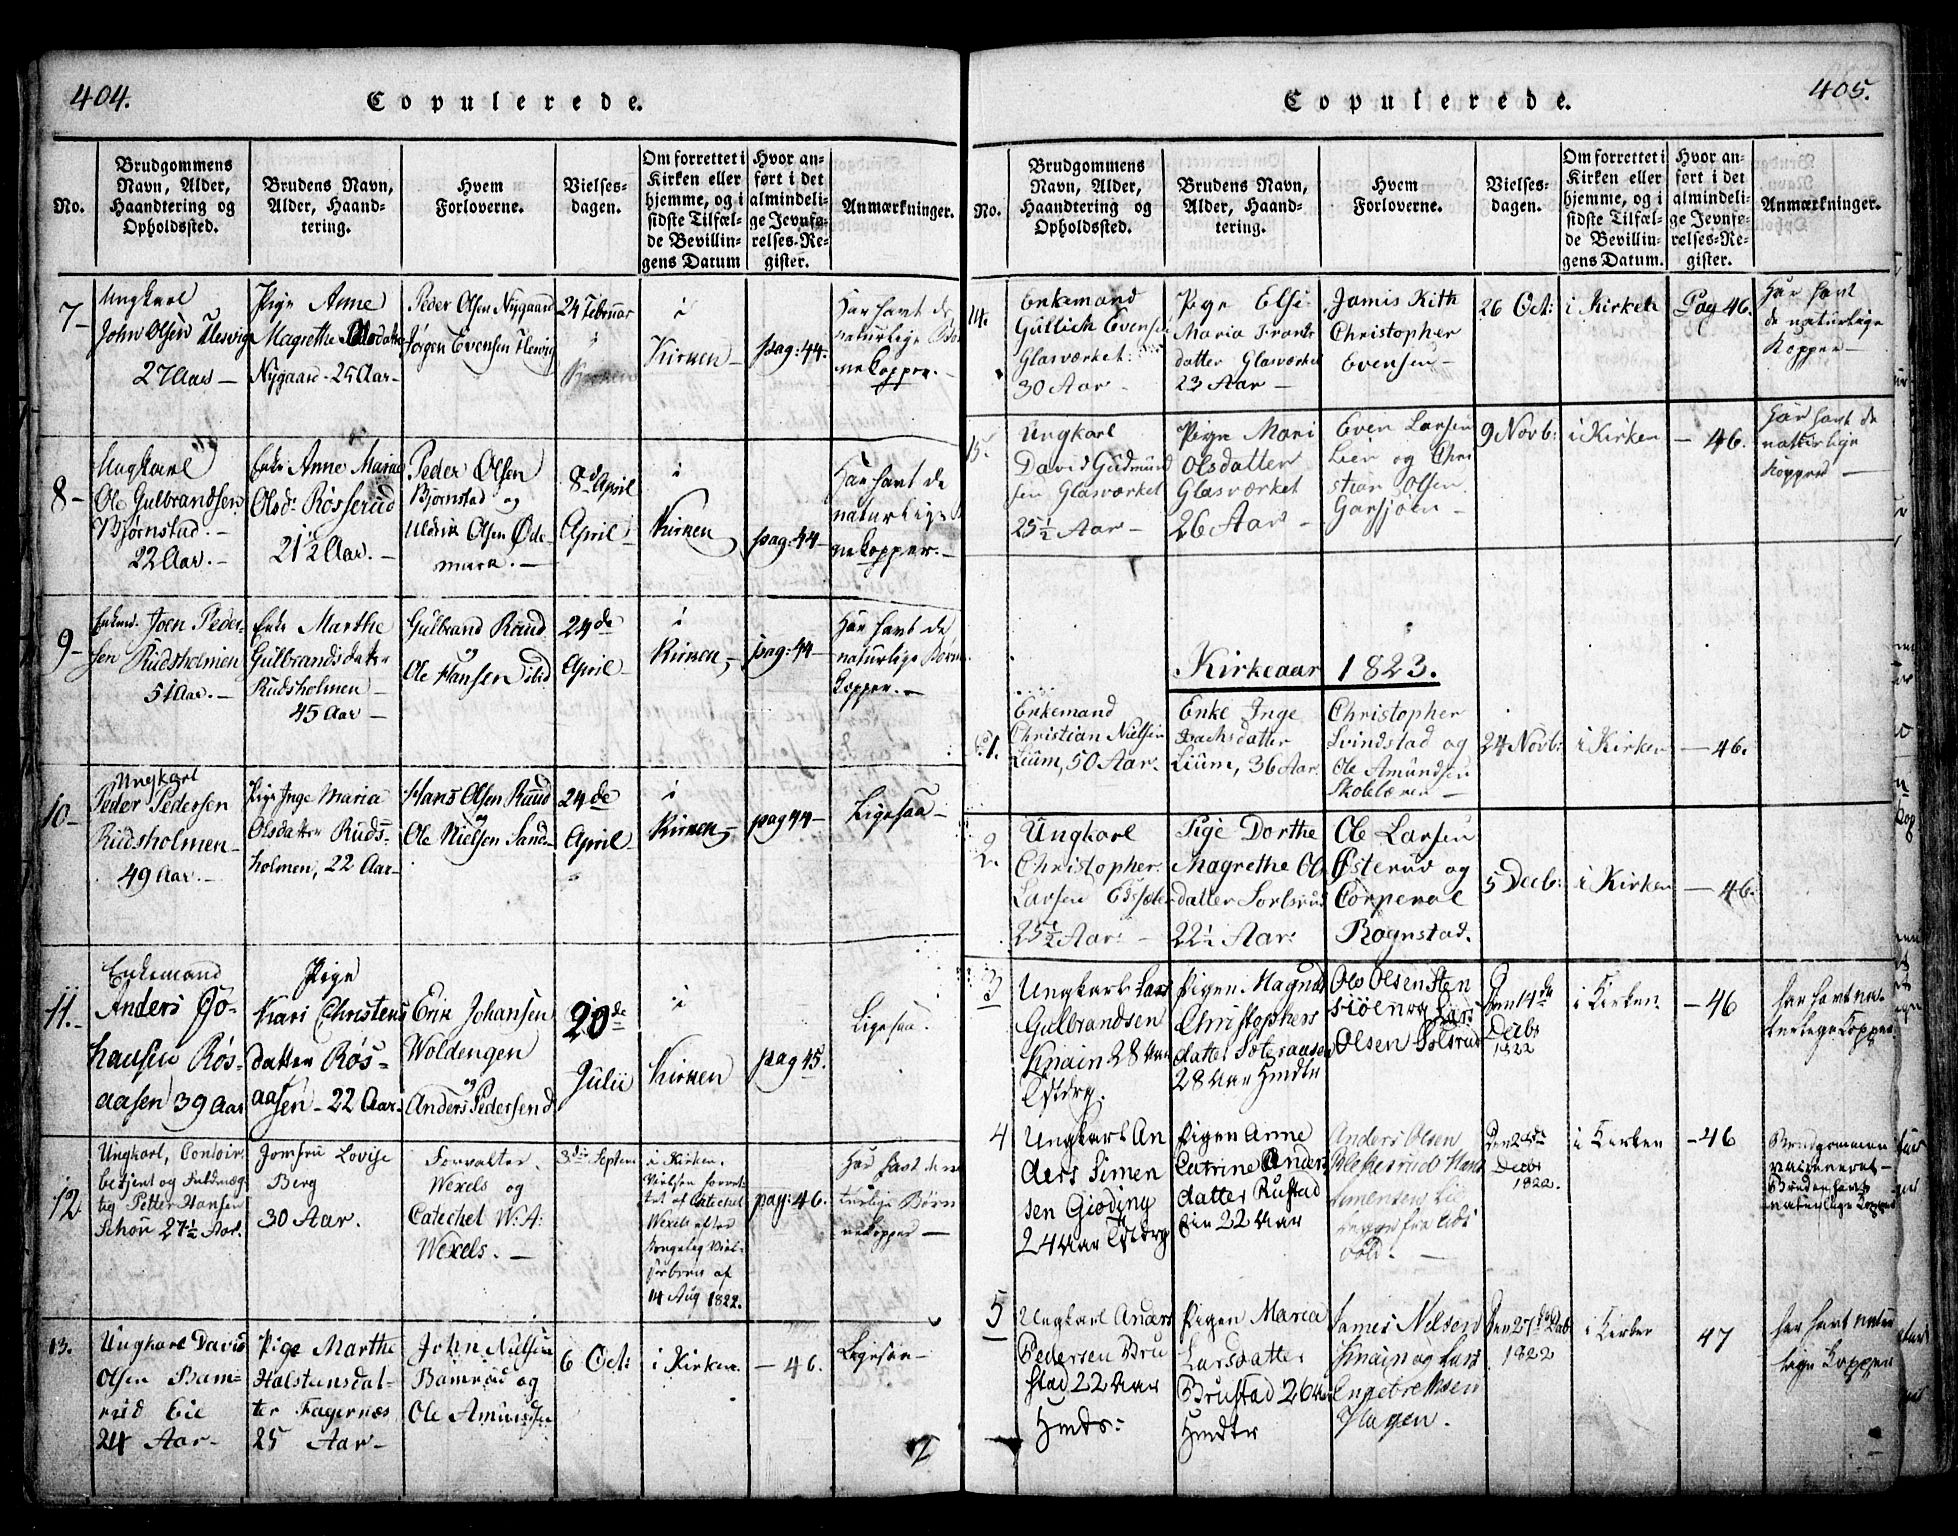 404.
Copulerede.
No.
Brudgommens
Navn, Alder,
Haandtering og
Opholdssted.
Brudens Navn,
Alder, Haand-
tering.
Hvem
Forloverne.
Vielses-
dagen.
Om forrettet i
Kirken eller
hjemme, og i
sidste Tilfæl-
de Bevillin-
gens Datum
Hvor an-
ført i det
almindeli-
ge Jevnfø-
relses-Re-
gister.
Anmærkninger.
7-
Ungkarl
John Olsen
27 Aar-
Pige Anne
Magrethe
Nygaard- 25 Aar-
Peder Olsen Nygaard
Jørgen Evensen
24 Februar
i
Kirken-
pag: 44.
Har havt de
naturlige Bør
nekopper.-
8-
Ungkarl
Ole Gulbrandsen
Bjørnstad.-
22 Aar.-
Enke Anne Maria
Olsd: Rösserud
21½ Aar.-
Peder Olsen
Bjørnstad og
Uldrik Olsen Øde-
mark.-
8de April
April
i
Kirken
pag: 44-
Har havt de
naturlige
nekopper.-
9-
Enkm. Joen Peder-
sen Rudsholmen
51 Aar.-
Enke Marthe
Gulbrandsdatter
Rudsholmen-
45 Aar-
Gulbrand Ruud
og
Ole Hansen ibid
24de
April-
i
Kirken,-
pag: 44-
Har havt de
naturlige Børne
kopper.-
10-
Ungkarl
Peder Pedersen
Rudsholmen-
49 Aar.-
Pige Inge Maria
Olsdatter Ruds-
holmen, 22 Aar-
Hans Olsen Ruud
og
Ole Nielsen Sand-
24de
April-
i
Kirken,-
pag 44-
Ligesaa-
11.-
Enkemand
Anders Jo-
hansen Røs-
aasen 39 Aar
Pige
Kari Christens
datter Røs-
aasen- 22 Aar-
Erik Johansen
Woldengen
og
Anders Pedersen
20de
Julii
i
Kirken
pag 45.
Ligesaa.
12.
Ungkarl, Contoir-
betjent og Fuldmæg-
tig Petter Hansen
Schou 27½ Aar.
Jomfru Lovise
Berg
30 Aar.
Forvalter
Wexels og
Catechet W: A:
Wexels.-
3die Septem
i Kirken.
Vielsen forret-
tet af Catechet
Wexels efter
Kongelig
af
14 Aug 1822.
pag: 46.
Har havt de na
turlige Børn
ekopper-
13.
Ungkarl David
Olsen Bam-
rud Eie
24 Aar-
Pige Marthe
Halstensdat-
ter Fagernæs
25 Aar-
John Nielsen
Bamrud og
Ole Amundsen
6 Oct:
i Kirken.
- 46.
Ligesaa-
405.
Copulerede.
No.
Brudgommens
Navn, Alder,
Haandtering og
Opholdssted.
Brudens Navn,
Alder, Haand-
tering.
Hvem
Forloverne.
Vielses-
dagen.
Om forrettet i
Kirken eller
hjemme, og i
sidste Tilfæl-
de Bevillin-
gens Datum.
Hvor an-
ført i det
almindeli-
ge Jevnfø-
relses-Re-
gister.
Anmærkninger.
14.
Enkemand
Gullich Evensen
Glasværket
30 Aar-
Pige Elsi
Maria Frants
datter Glasværket
23 Aar-
Jamis Kith
Christopher
Evensen-
26 Oct:
i Kirken
Pag 46.
Har havt
de naturlige
Kopper-
15.
Ungkarl
David Gudmund
sen Glasværket
25½ Aar-
Pige Mari
Olsdatter
Glasværket
26 Aar-
Even Larsen
Lier og Chri
stian Olsen
Garsjøen-
9 Novb:
i Kirken
- 46.
Har havt de
naturlige
Kopper-
Kirkeaar 1823.
1.
Enkemand
Christian Nielsen
Lium, 50 Aar.
Enke Inge
Isachsdatter
Lium, 36 Aar.
Christopher
Svindstad og
Ole Amundsen
Skolelærer-
24 Novb:
i Kirken
- 46.
2.
Ungkarl
Christopher
Larsen
25½ Aar-
Pige Dorthe
Magrethe Ols
datter
22½ Aar:
Ole Larsen
Østerud og
Corperal
Rognstad.
5 Decb:
i Kirken
- 46.
3
Ungkarl Lars
Gulbrandsen
Knain 28 Aar
Pigen Magnil
Christophers
datter
28 Aar
Ole Olsen Sten
siöen og Lars
Olsen
Den 14de
Decbr
1822
i Kirken
- 46
har havt na-
turlige Kopper
4
Ungkarl An
ders Simen
sen Giøding
24 Aar
Pigen Anne
Catrine Anders
datter Rustad
Eie 22 Aar
Anders Olsen
Simensen
Den
Decbr
1822.
i Kirken
- 46
Brudgommen
Vaccineret-
Bruden havt
naturlige Kopper
5
Ungkarl Anders
Pedersen Bru
stad 22 Aar
Pigen Maria
Larsdatter
Brustad 26 Aar
James Nelsen
Knain og Lars
Engebretsen
Hagen.
Den 27de Decb
1822
i Kirken
47
har havt natur
lige Kopper